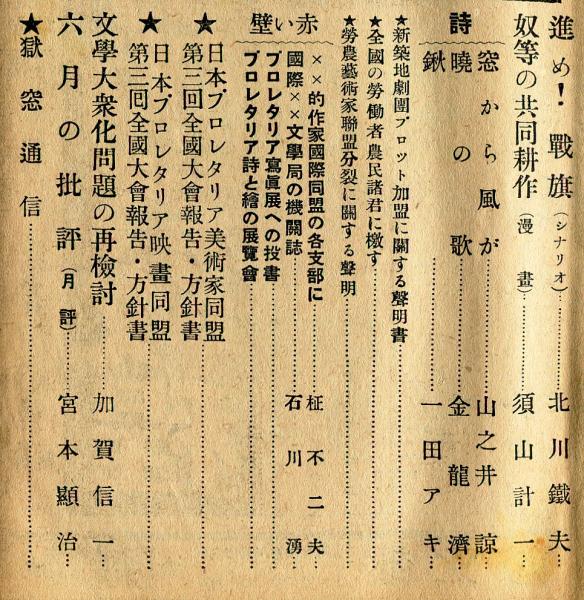 進め！戰旗（シナリオ）……北川鐵夫
奴等の共同耕作（漫畫）……須山計一
詩
窓から風が……山之井諒
曉の歌……金龍濟
鍬……一田アキ
★新築地劇團プロット加盟に關する聲明書……
★全國の勞働者農民諸君に檄す……
★勞農藝術家聯盟分裂に關する聲明……
赤い壁
××的作家國際同盟の各支部に
國際××文學局の機關誌……柾不二夫
プロレタリア寫眞展への投書……石川湧
プロレタリア詩と繪の展覽會
★日本プロレタリア美術家同盟
第三回全國大會報告・方針書……
★日本プロレタリア映畫同盟
第三回全國大會報告・方針書……
文學大衆化問題の再檢討……加賀信一
六月の批評（月評）……宮本顯治
★獄窓通信……